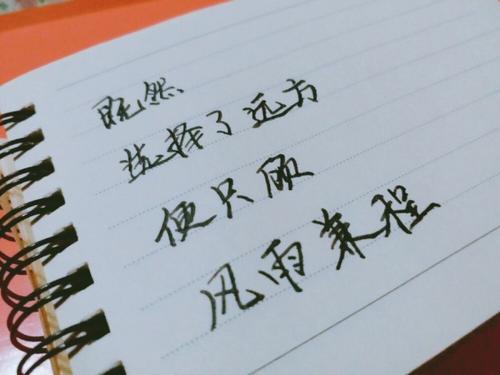 既然
选择了远方
便只顾
风雨兼程